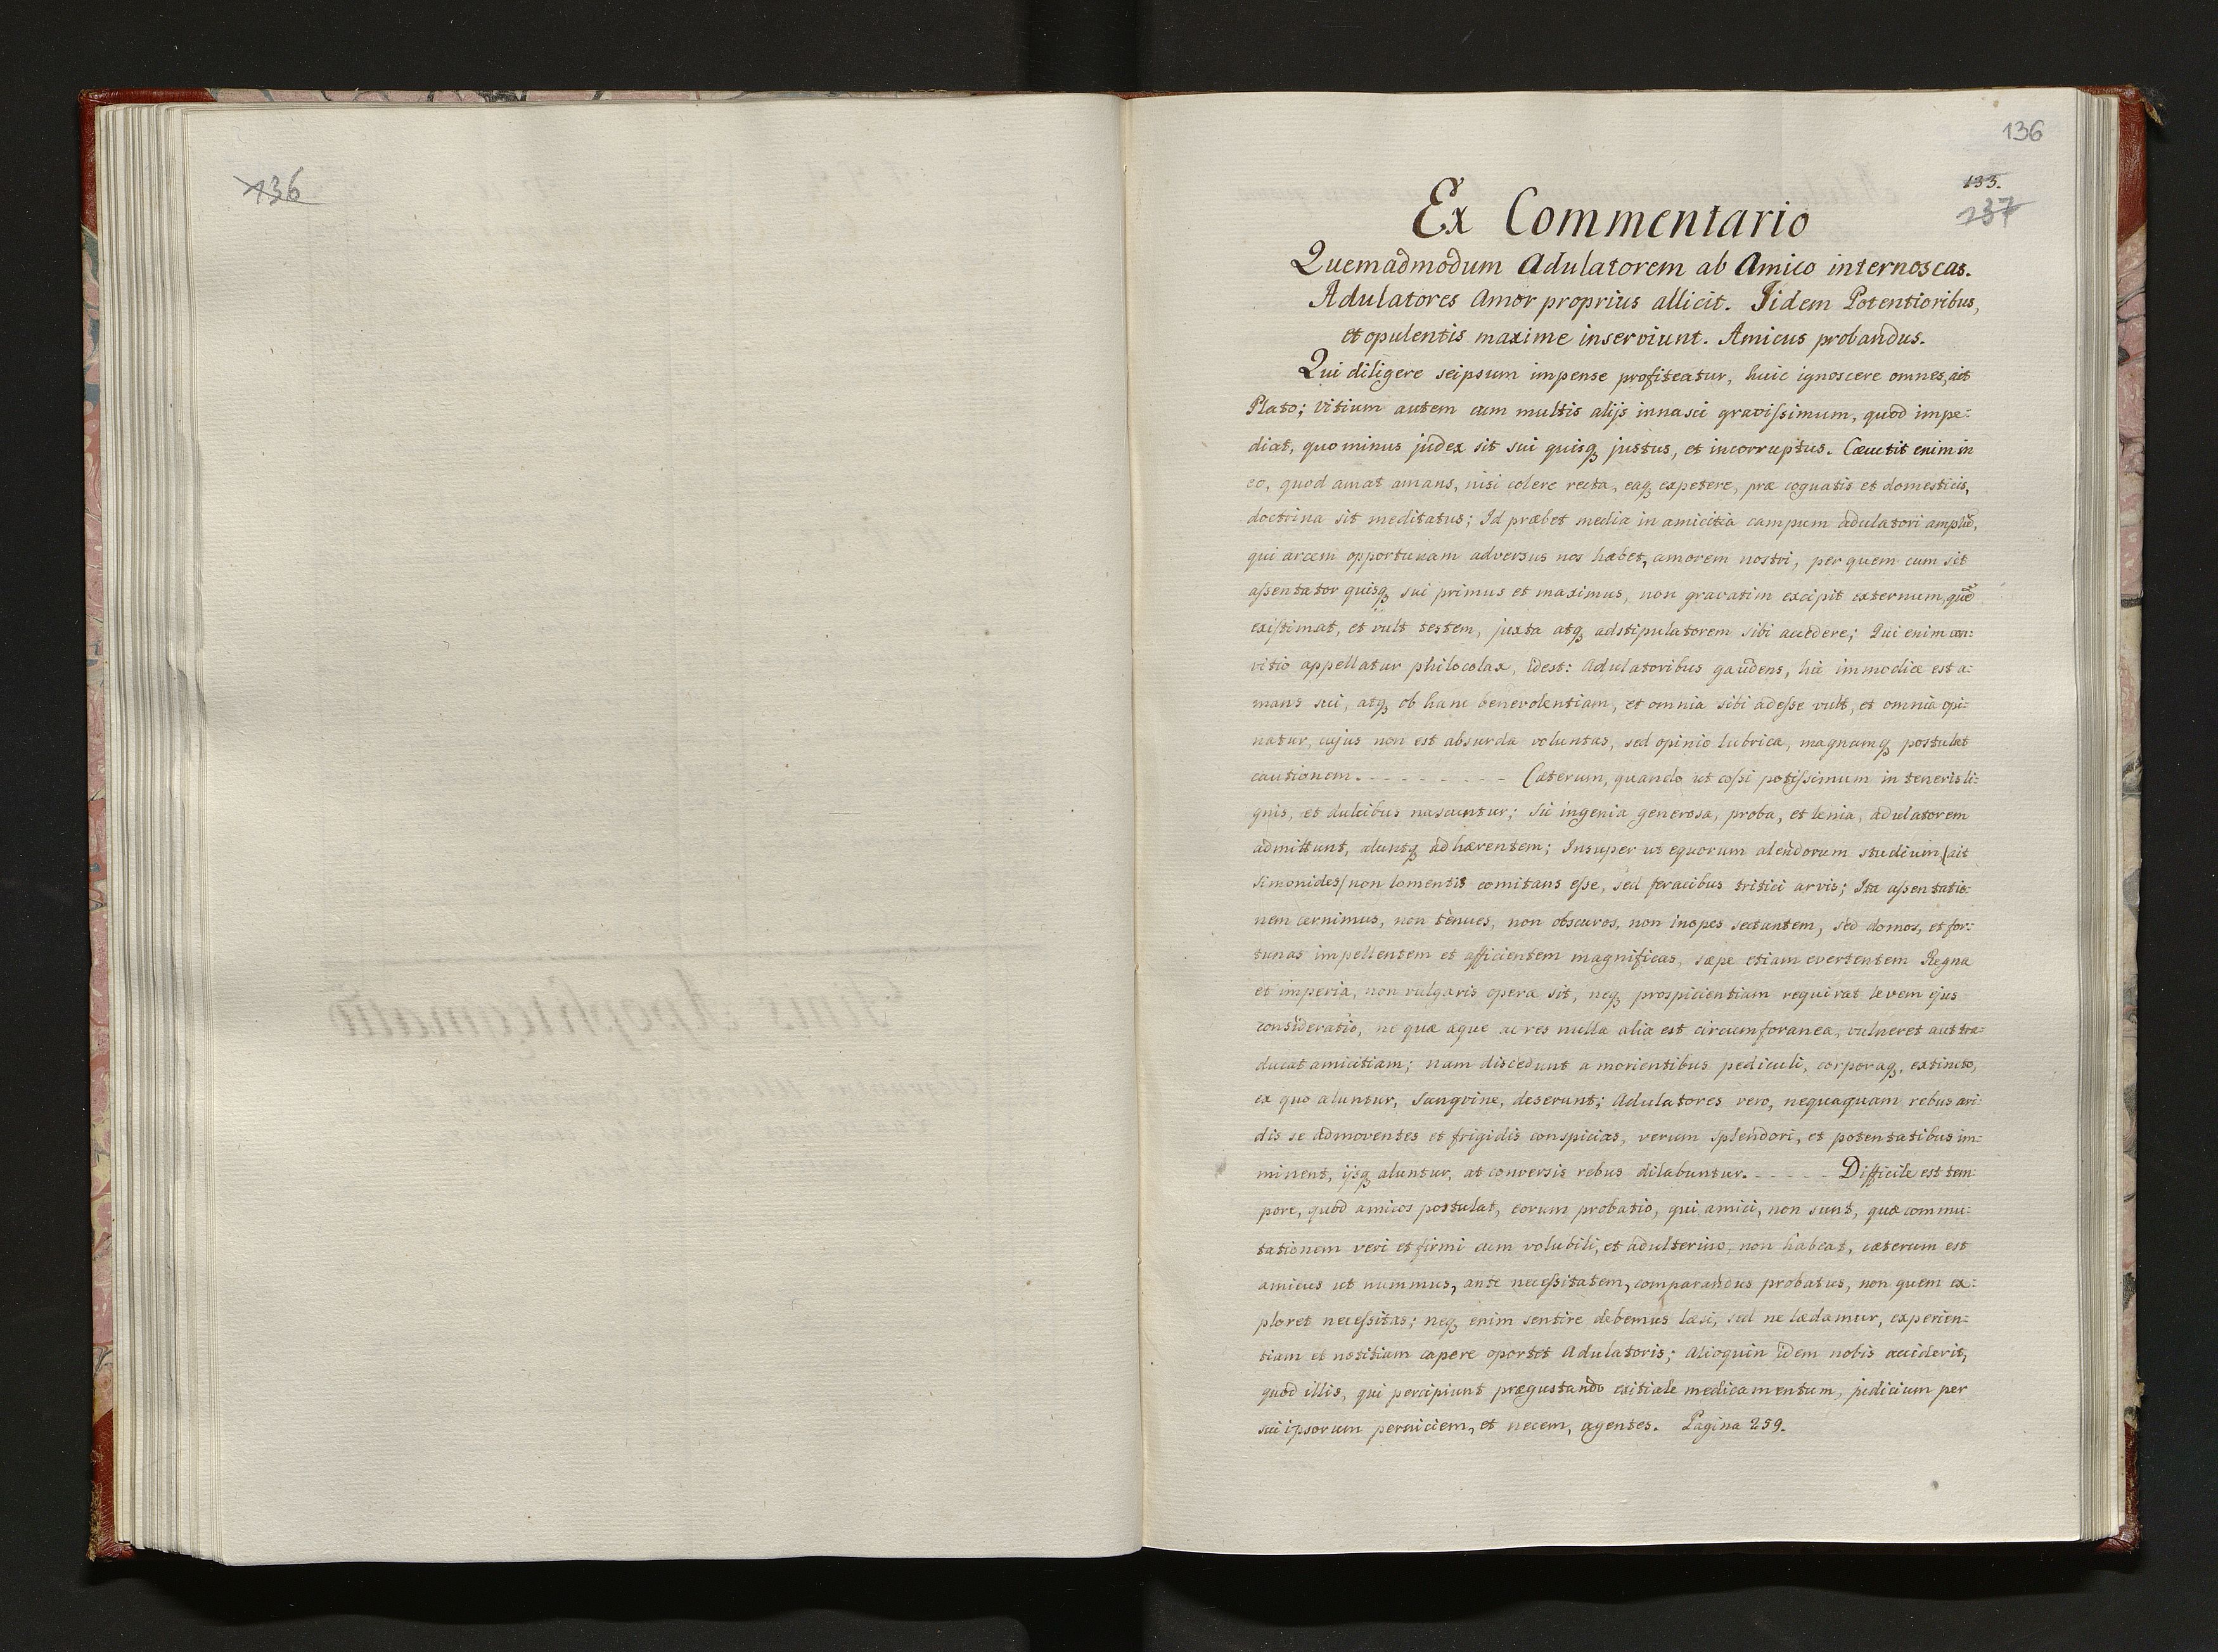 136
136
133.
237
Ex Commentario
Quemadmodum Adulatorem ab Amico internoscas.
Adulatores Amor proprius allicit. Iidem Potentioribus,
et opulentis maxime inserviunt. Amicus probandus.
Qui diligere seipsum impense profiteatur, huic ignoscere omnes, ait
Plato; Vitium autem cum multis alijs innasci gravissimum, quod impe:
diat, quo minus judex sit sui quisq justus, et incorruptus. Cæcutit enim in
eo, quod amat amans, nisi colere recta, eaq expetere, præ cognatis et domesticis,
doctrina sit meditatus; Id præbet media in amicitia campum adulatori amplũ,
qui arcem opportunam adversus nos habet, amorem nostri, per quem cum sit
assentator quisq sui primus et maximus, non gravatim excipit externum, quẽ
existimat, et vult testem, juxta atq adstipulatorem sibi accedere; Qui enim con:
vitio appellatur philocolax, idest: Adulatoribus gaudens, hic immodice est a:
mans sui, atq ob hanc benevolentiam, et omnia sibi adesse vult, et omnia opi:
natur, cujus non est absurda voluntas, sed opinio lubrica, magnamq postulat
cautionem. - - - - - - - - - Cæterum, quando ut cossi potissimum in teneris li:
gnis, et dulcibus nascuntur; Sic ingenia generosa, proba, et lenia, adulatorem
admittunt, aluntq adhærentem; Insuper ut equorum alendorum studium /ait
Simonides/ non lomentis comitans esse, sed feracibus tritici arvis; Ita assentatio:
nem cernimus, non tenues, non obscuros, non inopes sectantem, sed domos, et for:
tunas impellentem et afficientem magnificas, sæpe etiam evertentem Regna
et imperia, non vulgaris opera sit, neq prospicientiam requirat levem ejus
consideratio, ne quæ æque ac res nulla alia est circumforanea, vulneret aut tra:
ducat amicitiam; nam discedunt a morientibus pediculi, corporaq, extincto,
ex quo aluntur, Sangvine, deserunt; Adulatores vero, nequaquam rebus ari:
dis se admoventes et frigidis conspicias, verum splendori, et potentatibus im:
minent, ijsq aluntur, at conversis rebus dilabuntur. - - - - - Difficile est tem:
pore, quod amicos postulat, eorum probatio, qui amici, non sunt, quæ commu:
tationem veri et firmi cum volubili, et adulterino, non habeat, cæterum est
amicus ut nummus, ante necessitatem, comparandus probatus, non quem ex:
ploret necessitas; neq enim sentire debemus læsi, sed ne lædamur, experien:
tiam et notitiam capere oportet Adulatoris; Alioquin idem nobis acciderit,
quod illis, qui percipiunt prægustando exitiale medicamentum, judicium per
sui ipsorum perniciem, et necem, agentes. Pagina 259.